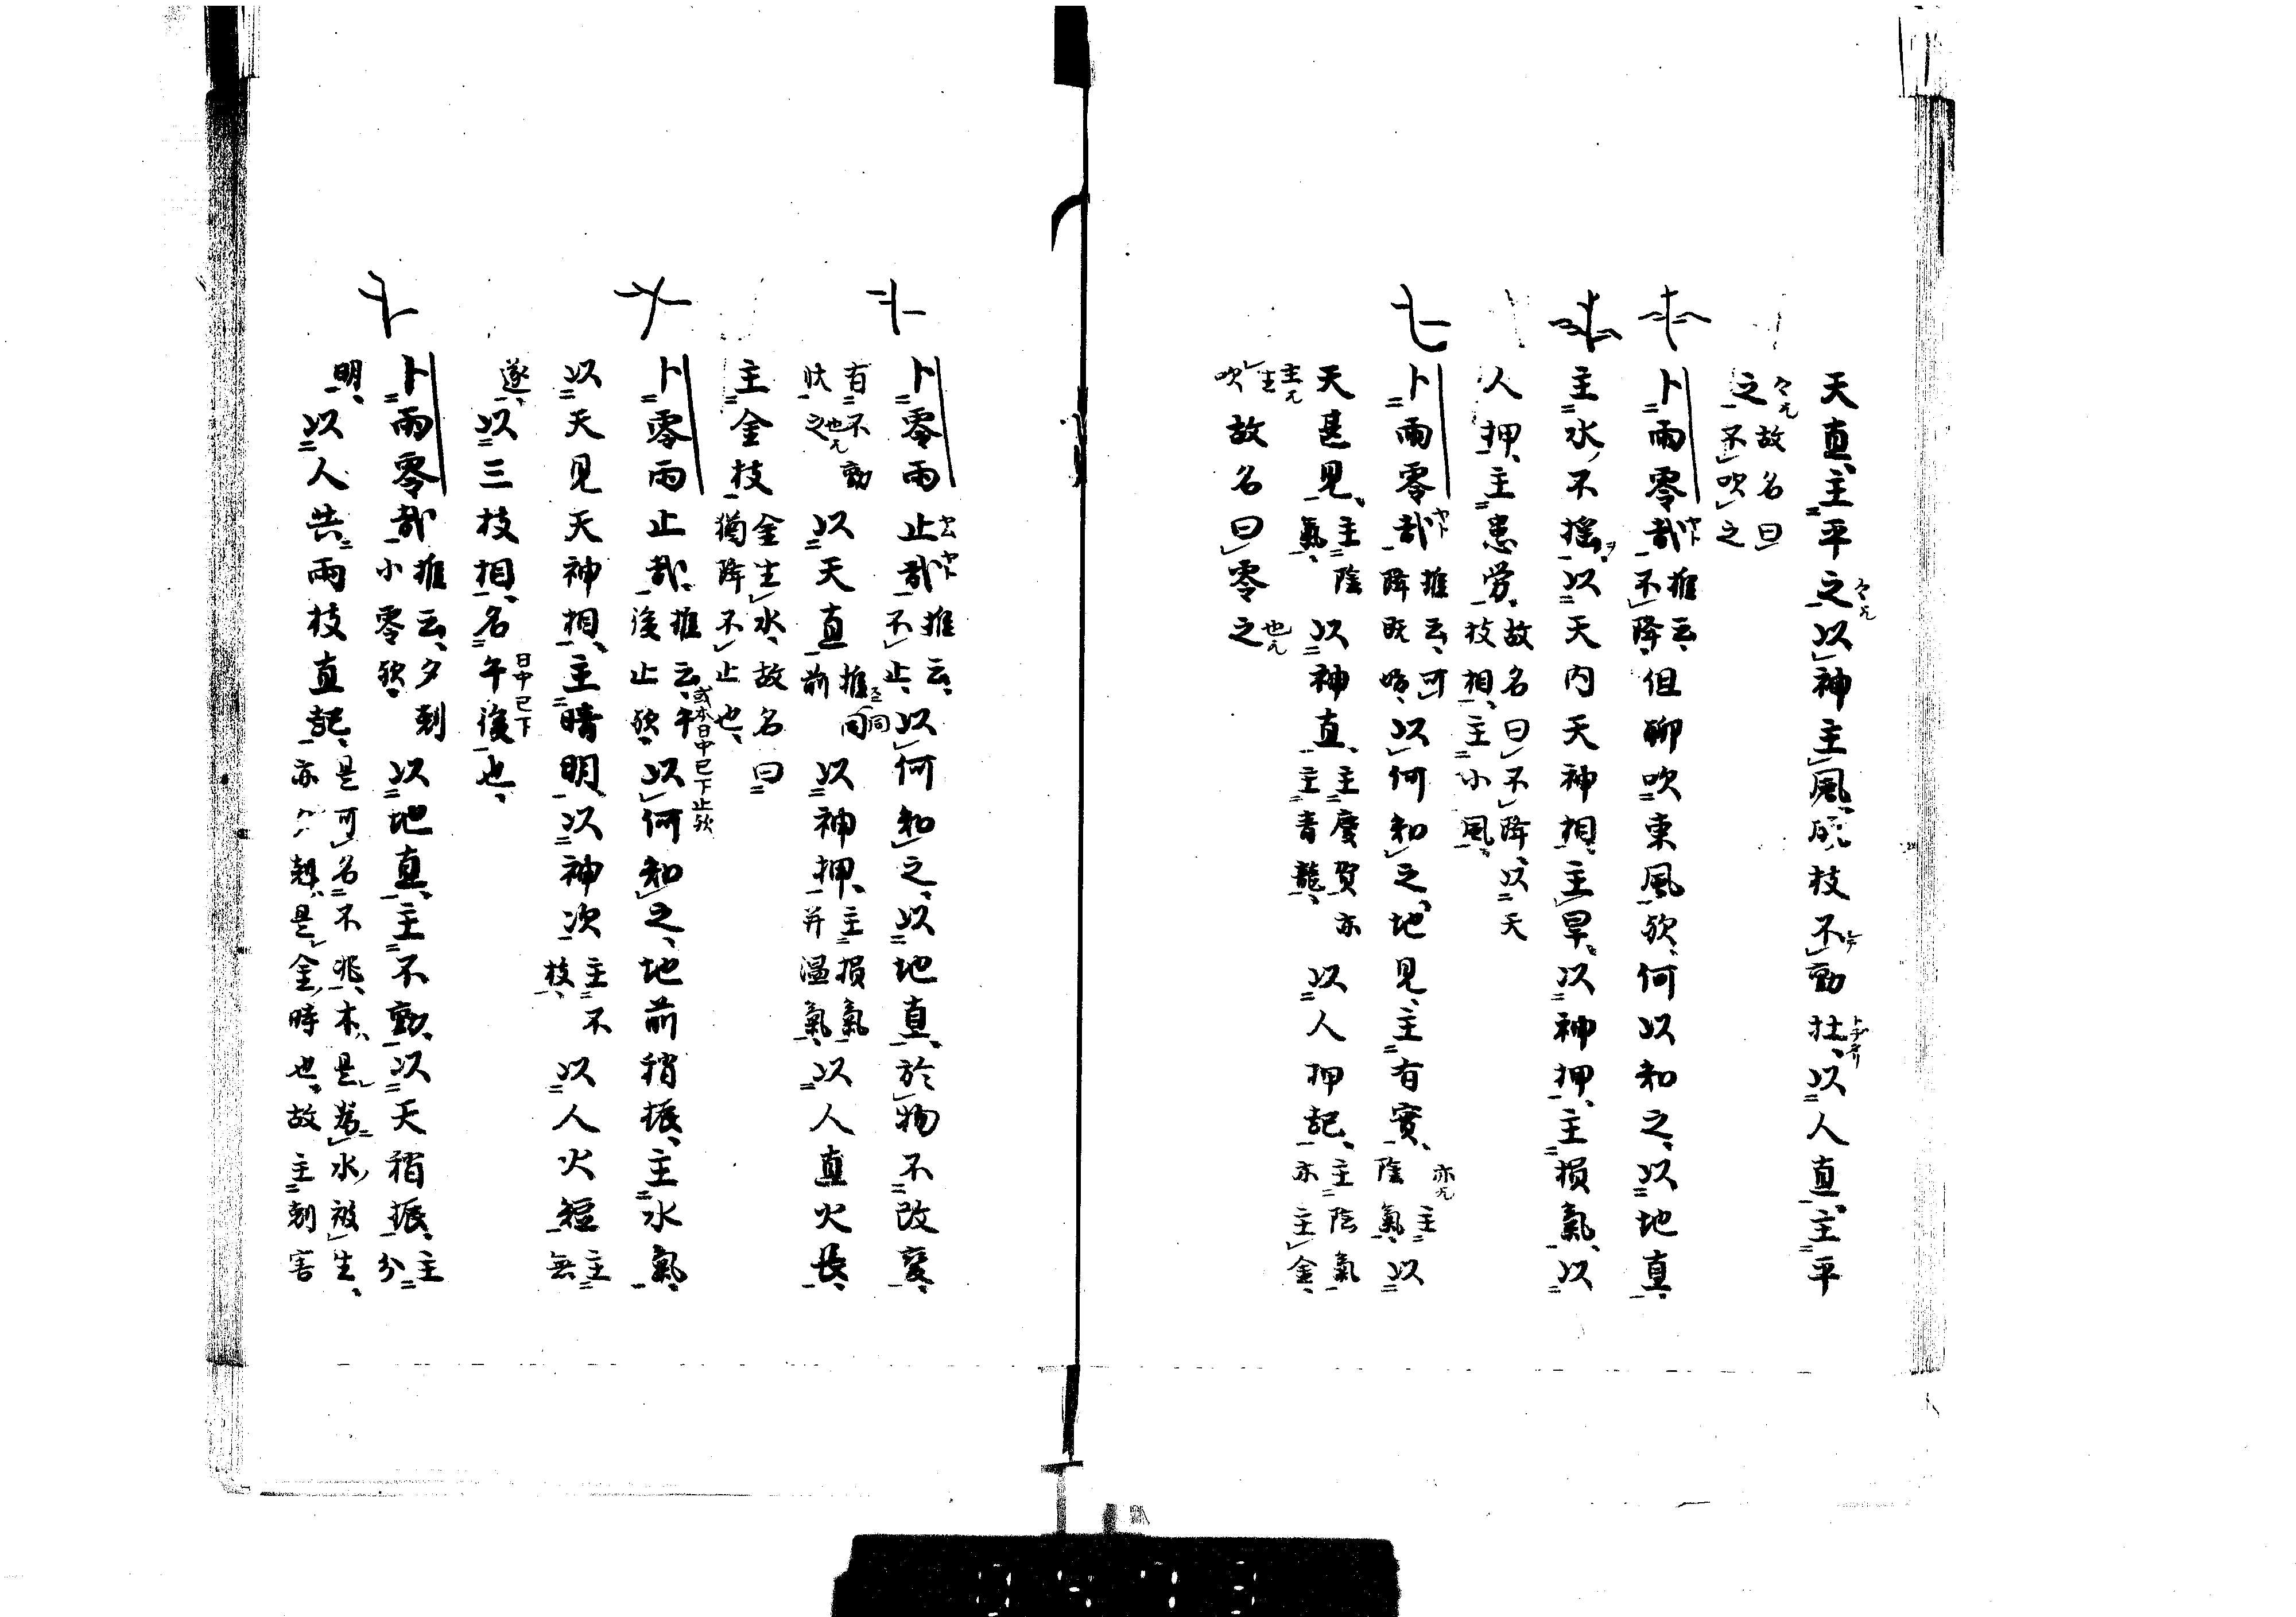 天直、主平之、以神主風、成枝不動壮、以人直、主平
之、故名曰不吹之
卜雨零哉推云、不降、但聊吹東風歟、何以知之、以地直、
主水、不揺、以天内天神相、主旱、以神押、主損氣、以
人押、主患労、故名曰不降、以天枝相、主小風、
卜雨零哉推云、可降既晴、以何知之、地見、主有實、主陰氣、以
天甚見、主陰氣、以神直、主慶賀亦主青龍、以人押記、主陰氣亦主金、
吹故名曰零之
卜零雨止哉推云、不止、以何知之、以地直、於物不改変、
有不動状之以天直前推同以神押、主損氣并温氣、以人直火長、
主金枝金生水、故名曰猶降不止也、
卜零雨止哉、推云、午後止歟、以何知之、地前稍振、主水氣、
或本日中已下止歟
以天見天神相、主晴明、以神次主不枝、以人火短主無
遂、以三枝相、名午後也、
日中已下
卜雨零哉推云、夕剋小零歟、以地直、主不動、以天稍振、主分
明、以人共雨枝直記、是可名不兆、木是為水被生、亦剋、是金時也、故主剋害